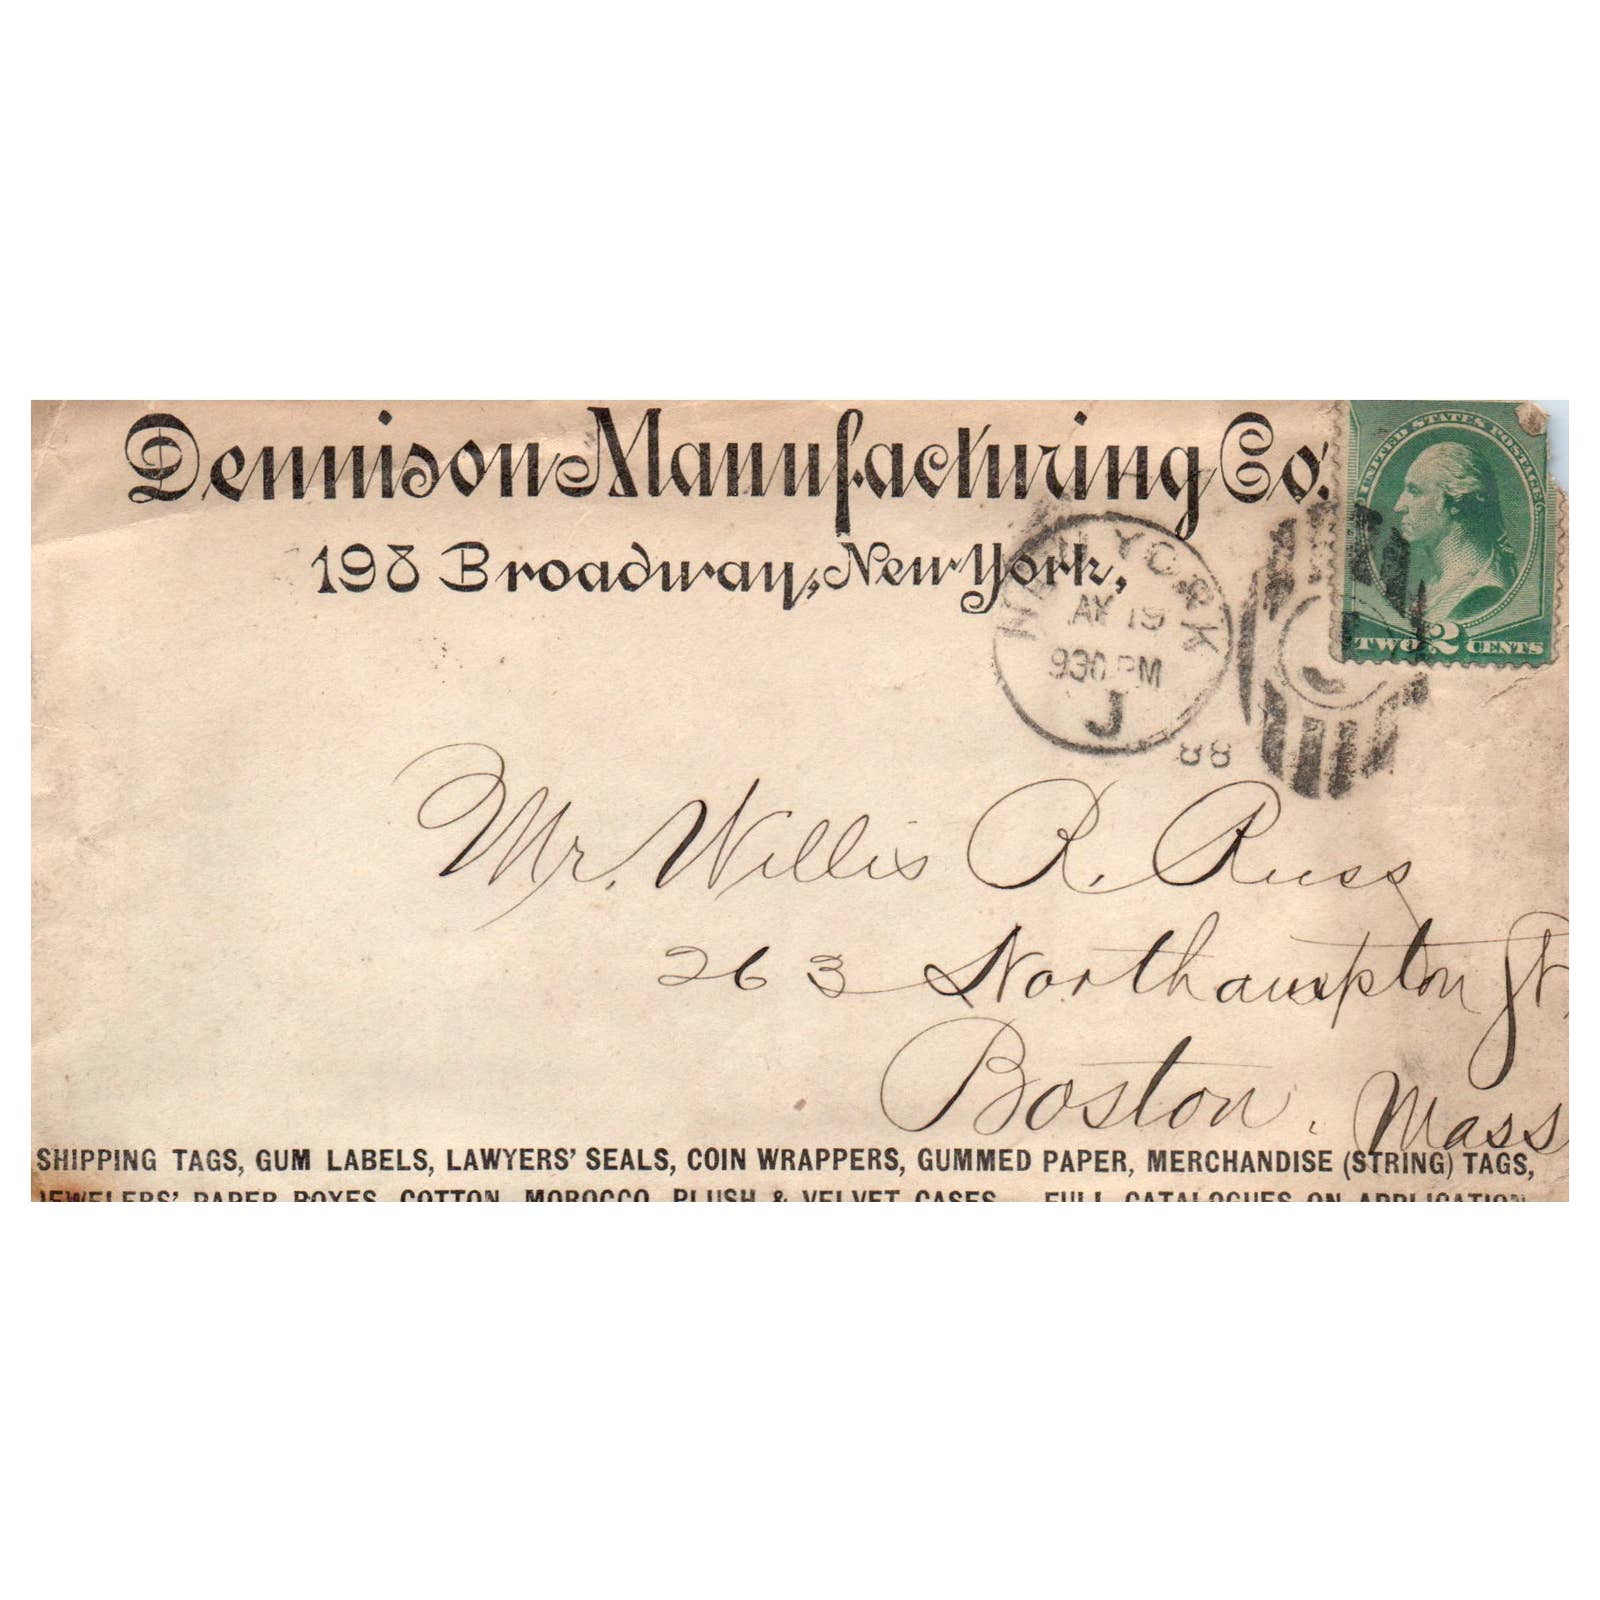 Dennison Manufacturing Co.
198 Broadway, New York,
UNITED STATES POSTAGE
TWO 2 CENTS
NEW YORK
19
930 PM
J
88
Mr. Willis R. Russ
263 Northampton St.
Boston, Mass
SHIPPING TAGS, GUM LABELS, LAWYERS' SEALS, COIN WRAPPERS, GUMMED PAPER, MERCHANDISE (STRING) TAGS,
JEWELERS' PAPER BOXES, COTTON, MOROCCO, PLUSH & VELVET CASES. FULL CATALOGUES ON APPLICATION